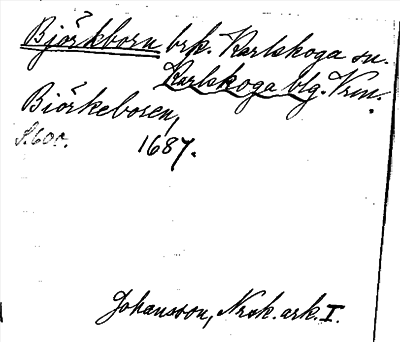 Björkborn brk. Karlskoga sn.
Karlskoga blg. Vrm.
Biörkeboren,
S. 60r. 1687.
Johansson, Nrsk. ark. I.